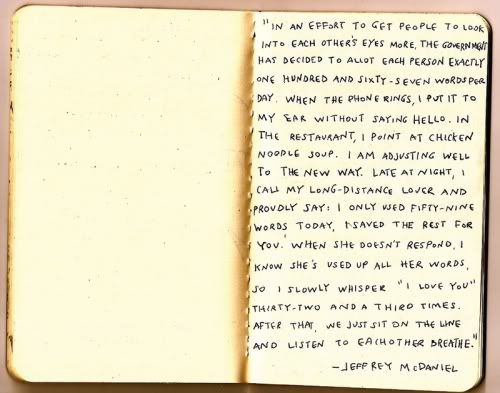 "IN AN EFFORT TO GET PEOPLE TO LOOK
INTO EACH OTHER'S EYES MORE, THE GOVERNMENT
HAS DECIDED TO ALLOT EACH PERSON EXACTLY
ONE HUNDRED AND SIXTY-SEVEN WORDS PER
DAY. WHEN THE PHONE RINGS, I PUT IT TO
MY EAR WITHOUT SAYING HELLO. IN
THE RESTAURANT, I POINT AT CHICKEN
NOODLE SOUP. I AM ADJUSTING WELL
TO THE NEW WAY. LATE AT NIGHT, I
CALL MY LONG-DISTANCE LOVER AND
PROUDLY SAY: I ONLY USED FIFTY-NINE
WORDS TODAY, I SAVED THE REST FOR
YOU. WHEN SHE DOESN'T RESPOND, I
KNOW SHE'S USED UP ALL HER WORDS,
SO I SLOWLY WHISPER "I LOVE YOU"
THIRTY-TWO AND A THIRD TIMES.
AFTER THAT, WE JUST SIT ON THE LINE
AND LISTEN TO EACHOTHER BREATHE."
–JEFFREY McDANIEL